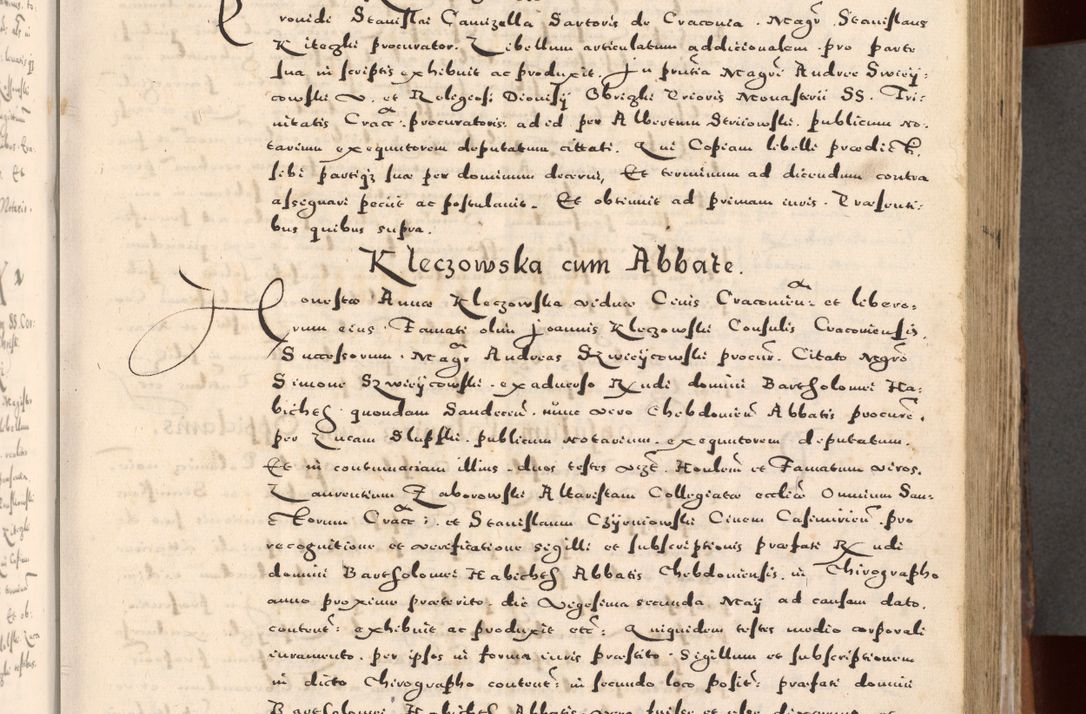 rovidi Stanislai Camizella Sartoris de Cracovia. Magr Stanislaus
Kiteczki procurator. Libellum articulatum addicionalem pro parte
sua in scriptis exhibuit ac produxit. In pntia Magri Andree Swiey:
cowski et Religiosi Dionisy Obrigki Prioris Monasterii SS. Tri:
nitatis Cracc. procuratoris ad id per Albertum Striiowski publicum no.
tarium exequutorem deputatum cittati. Qui Copiam libelli prædicti.
sibi partiqz suæ per dominum decerni, Et terminum ad dicendum contra
assignari petiit ac postulavit. Et obtinuit ad primam iuris. Præsenti:
bus quibus supra.
Kleczowska cum Abbate.
Honestæ Annæ Kleczowska viduæ Civis Cracovien: et libero:
rum eius Famati olim Joannis Kleczowski Consulis Cracoviensis.
Successorum. Magr Andreas Szwieycowski procur. Citato Magro
Simone Szwieycowski. ex adverso Rndi domini Bartholomei Ha:
bicht quondam Sandecen. nunc vero Chebdovien Abbatis procure.
per Lucam Slupski. publicum notarium. exequutorem deputatum.
Et in continuaciam illius. duos testes vezt. Honlem et Famatum viros.
Laurentium Zaborowski Altaristam Collegiatæ eccliæ Omnium San:
ctorum Cracc: et Stanislaum Czyrniowski Civem Casimirien. pro
recognitione et verificatione sigilli et subscriptionis præfati Rndi
domini Bartholomei Habicht Abbatis Chebdoniensis. in Chirographo
anno proximo præterito. die vigesima secunda Maij ad causam dato.
content: exhibuit ac produxit etc: Quiquidem testes medio corporali
iuramento. per ipsos in forma iuris præstito. Sigillum et subscriptionem
in dicto Chirographo content: in secundo loco posit: præfati domini
Bartholomei Habicht Abbatis